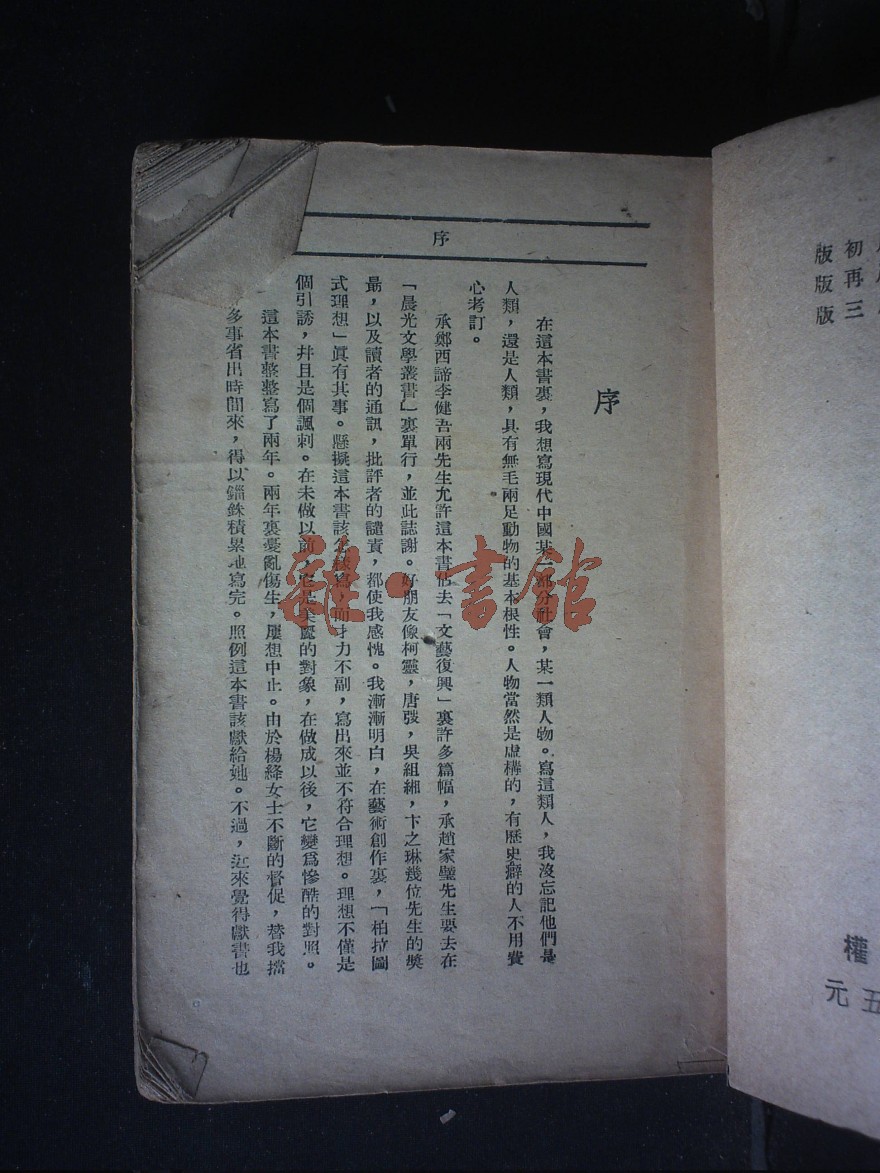 序
序
在這本書裏，我想寫現代中國某一部分社會，某一類人物。寫這類人，我沒忘記他們是
人類，還是人類，具有無毛兩足動物的基本根性。人物當然是虛構的，有歷史癖的人不用費
心考訂。
承鄭西諦李健吾兩先生允許這本書佔去「文藝復興」裏許多篇幅，承趙家璧先生要去在
「晨光文學叢書」裏單行，並此誌謝。好朋友像柯靈，唐弢，吳組緗，卞之琳幾位先生的獎
勗，以及讀者的通訊，批評者的譴責，都使我感愧。我漸漸明白，在藝術創作裏，「柏拉圖
式理想」眞有其事。懸擬這本書該怎樣寫，而才力不副，寫出來並不符合理想。理想不僅是
個引誘，幷且是個諷刺。在未做以前，它是美麗的對象，在做成以後，它變爲慘酷的對照。
這本書整整寫了兩年。兩年裏憂亂傷生，屢想中止。由於楊絳女士不斷的督促，替我擋
多事省出時間來，得以錙銖積累地寫完。照例這本書該獻給她。不過，近來覺得獻書也
初版
再版
三版
權
五元
雜·書館